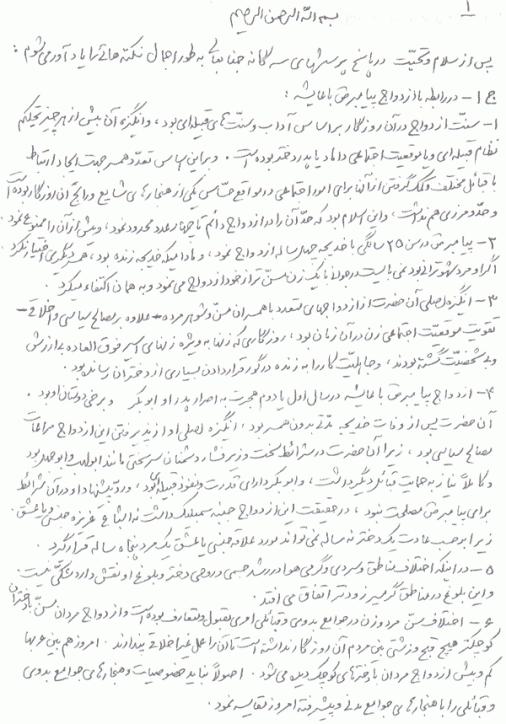 ۱
بسم الله الرحمن الرحیم
پس از سلام و تحیّت در پاسخ پرسشهای سه گانه جنابعالی به طور اجمال نکته هائی را یادآور می شوم :
ج ۱ – در رابطه با ازدواج پیامبر (ص) با عایشه :
۱- سنّت ازدواج در آن روزگار بر اساس آداب و سنّت های قبیله ای بود ، و انگیزه آن بیش از هر چیز تحکیم
نظام قبیله ای و یا موقعیت اجتماعی داماد یا پدر دختر بوده است . و بر این اساس تعدّد همسر جهت ایجاد ارتباط
با قبائل مختلف و کمک گرفتن از آنها برای امور اجتماعی در مواقع حسّاس یکی از هنجارهای شایع و رائج آن روزگار بوده است
و حدّ و مرزی هم نداشت ، و این اسلام بود که حدّ آن را در ازدواج دائم تا چهار عدد محدود نمود ، و بیش از آن را ممنوع نمود .
۲- پیامبر (ص) در سن ۲۵ سالگی با خدیجه چهل ساله ازدواج نمود ، و مادامیکه خدیجه زنده بود ، همسر دیگری اختیار نکرد .
اگر او مرد شهوترانی بود نمی بایست در جوانی با یک زن مسنّ تر از خود ازدواج می نمود و به همان اکتفاء میکرد .
۳- انگیزه اصلی آن حضرت از ازدواجهای متعدد با همسران مسنّ و شوهر مرده – علاوه بر مصالح سیاسی و اخلاقی –
تقویت موقعیّت اجتماعی زن در آن زمان بود ، روزگاری که زنها به ویژه زنهای اسیر فوق العاده بی ارزش
و بی شخصیّت گشته بودند ، و جاهلیّت کار را به زنده در گور قراردادن بسیاری از دختران رسانده بود .
۴- ازدواج پیامبر (ص) با عایشه در سال اول یا دوم هجرت به اصرار پدر او ابوبکر و برخی دوستان او بود .
آن حضرت پس از وفات خدیجه مدّتی بدون همسر بود ، انگیزه اصلی او از پذیرفتن این ازدواج مراعات
مصالح سیاسی بود ، زیرا آن حضرت در شرائط سخت و زیر فشار دشمنان سرسختی مانند ابولهب و ابوجهل بود
و کاملاً نیاز به حمایت قبائل دیگر داشت ، و ابوبکر دارای قدرت و نفوذ قبیله ای بود ، و ردّ پیشنهاد او در آن شرائط
برای پیامبر (ص) مصلحت نبود ، در حقیقت این ازدواج جنبه سمبلیک داشت نه اشباع غریزه جنسی و یا عشق .
زیرا بر حسب عادت یک دختر نه ساله نمی تواند مورد علاقه جنسی یا عشق یک مرد پنجاه ساله قرار گیرد .
۵- در اینکه اختلاف مناطق و سردی و گرمی هوا در رشد جسمی و روحی دختر و بلوغ او نقش دارد شکّی نیست
و این بلوغ در مناطق گرمسیر زودتر اتفاق می افتد .
۶- اختلاف سنّ مرد و زن در جوامع بدوی و قبائلی امری مقبول و متعارف بوده است و ازدواج مردان مسنّ با دختران
کوچکتر هیچ قبح و زشتی بین مردم آن روزگار نداشته است تا آن را عمل غیر اخلاقی بپندارند . امروز هم بین عربها
کم و بیش ازدواج مردان با دخترهای کوچک دیده می شود . اصولاً نباید خصوصیات و هنجارهای جوامع بدوی
و قبائلی را با هنجارهای جوامع مدنی و پیشرفته امروز مقایسه نمود .